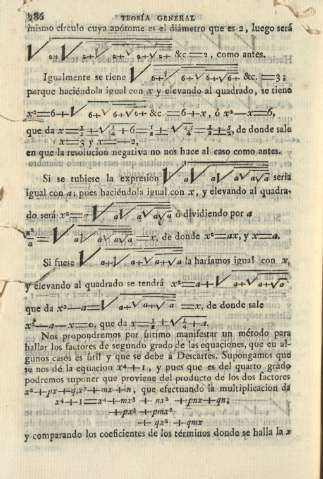 286 TEORÍA GENERAL
mismo círculo cuya apótome es el diámetro que es 2, luego será
√ 2+√ 2+√ 2+√ 2+ &c = 2, como antes.
Igualmente se tiene √ 6+√ 6+√ 6+√ 6+ &c. = 3;
porque haciéndola igual con x y elevando al cuadrado, se tiene
x²=6+√ 6+√ 6+√ 6+ &c. =6+x, ó x²—x=6,
que da x=½+√¼+6=½±√25/4=½±5/2, de donde sale
x=3 y x=—2,
en que la resolucion negativa no nos hace al caso como antes.
Si se tubiese la expresión √ a√ a√ a√a sería
igual con a; pues haciéndola igual con x, y elevando al quadra-
do será x²=a√ a√ a√ a√a ó dividiendo por a
x²/a=√ a√ a√ a√a = x, de donde x²=ax, y x=a.
Si fuese √ a+√ a+√ a+√ a la haríamos igual con x,
y elevando al quadrado se tendrá x²=a+√ a+√ a+√ a
que da x²—a=√ a+√ a+√ a =x, de donde sale
x²—a—x=0, que da x=½±√¼+a.
Nos propondremos por último manifestar un método para
hallar los factores de segundo grado de las equaciones, que en al-
gunos casos es útil y que se debe á Descartes. Supongamos que
se nos dé la equacion x⁴+1, y pues que es del quarto grado
podremos suponer que proviene del producto de los dos factores
x²+px+q,x²+mx+n, que efectuando la multiplicacion da
x⁴+1=x⁴+mx³+nx²+pnx+qn;
+px³+pmx²
+qx²+qmx
y comparando los coeficientes de los términos donde se halla la x